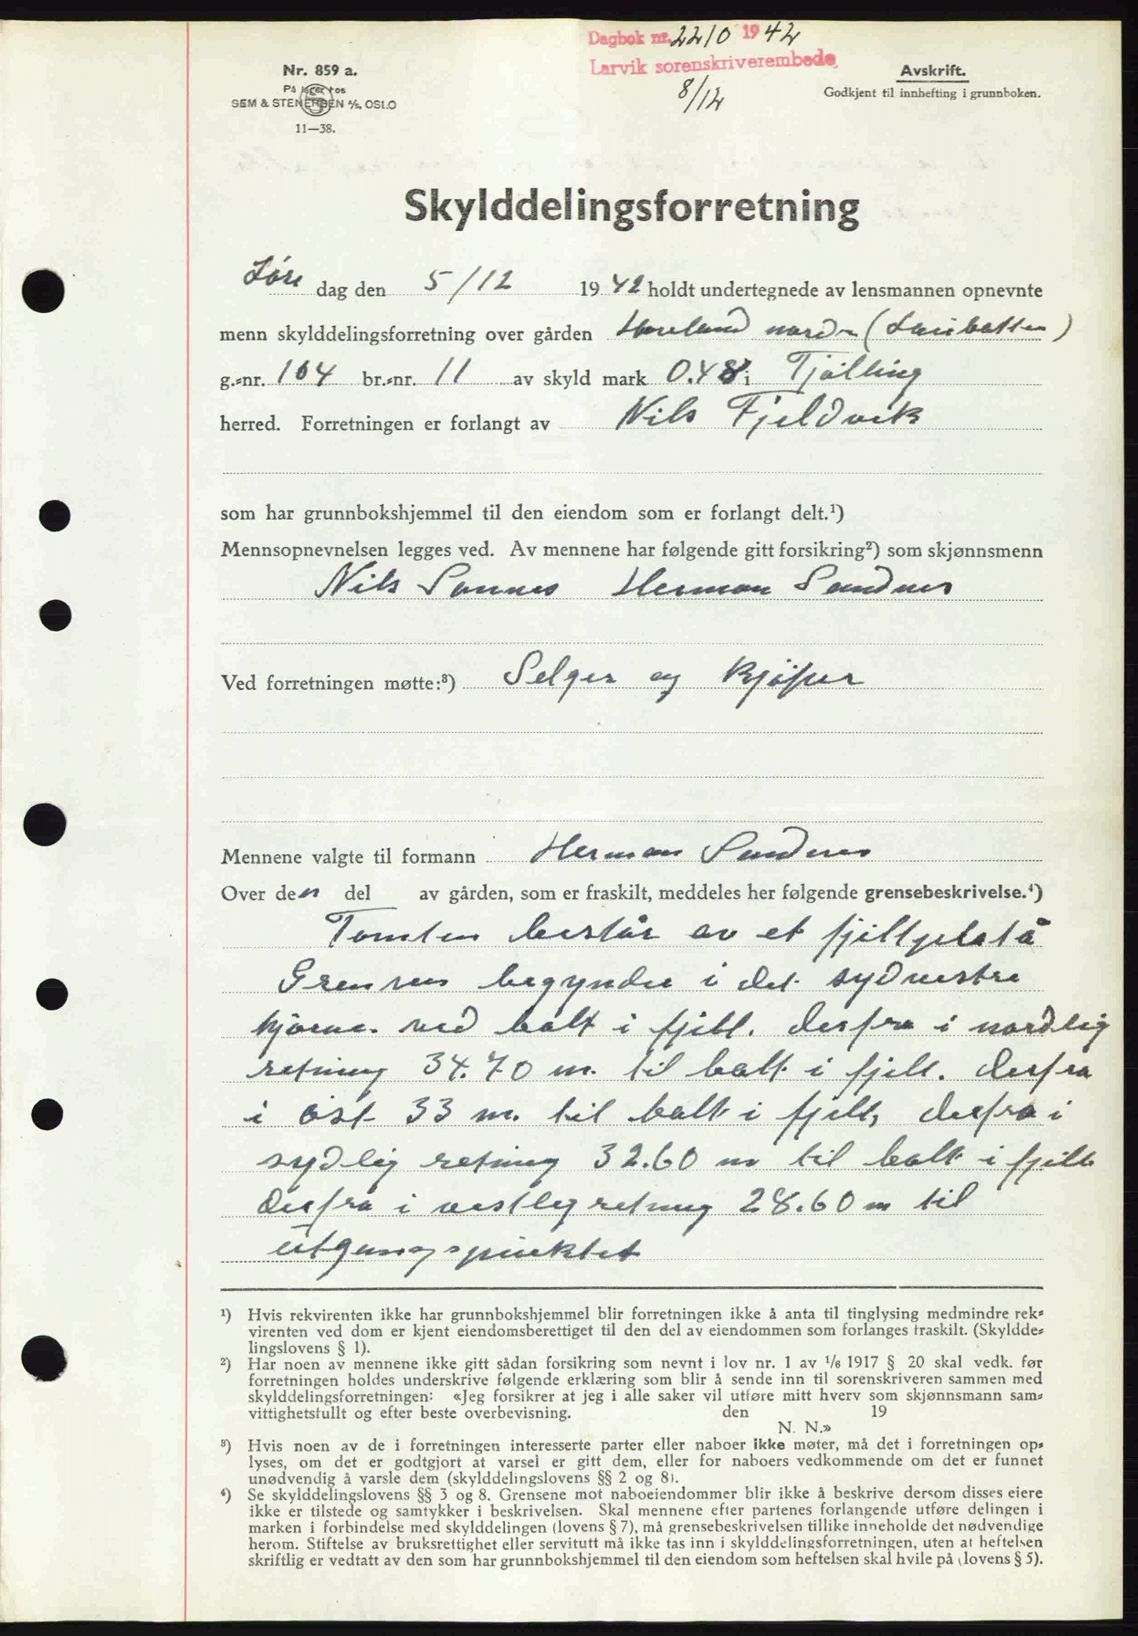 Dagbok nr. 2210 1942
Larvik sorenskriverembede
8/12
Nr. 859 a.
På lager hos
SEM & STENERSEN A/S, OSLO
11—38.
Avskrift.
Godkjent til innhefting i grunnboken.
Skylddelingsforretning
Lör dag den 5/12 1942 holdt undertegnede av lensmannen opnevnte
menn skylddelingsforretning over gården nordre
g.-nr. 104 br.-nr. 11 av skyld mark 0.48 i Tjölling
herred. Forretningen er forlangt av Nils Fjeldvik
som har grunnbokshjemmel til den eiendom som er forlangt delt.¹)
Mennsopnevnelsen legges ved. Av mennene har følgende gitt forsikring²) som skjønnsmenn
Nils Sannes Herman Sandnes
Ved forretningen møtte:³) Selger og kjöper
Mennene valgte til formann Herman Sandnes
Over den del av gården, som er fraskilt, meddeles her følgende grensebeskrivelse.⁴)
Tomten består av et fjellplatå
Grensen begynder i det sydvestre
hjörne ved bolt i fjell. derfra i nordlig
retning 34.70 m. til bolt i fjell. derfra
i öst 33 m. til bolt i fjell, derfra i
sydlig retning 32.60 m til bolt i fjell
derfra i vestlig retning 28.60 m til
utgangspunktet
¹) Hvis rekvirenten ikke har grunnbokshjemmel blir forretningen ikke å anta til tinglysing medmindre rek-
virenten ved dom er kjent eiendomsberettiget til den del av eiendommen som forlanges fraskilt. (Skyldde-
lingslovens § 1).
²) Har noen av mennene ikke gitt sådan forsikring som nevnt i lov nr. 1 av 1/6 1917 § 20 skal vedk. før
forretningen holdes underskrive følgende erklæring som blir å sende inn til sorenskriveren sammen med
skylddelingsforretningen: «Jeg forsikrer at jeg i alle saker vil utføre mitt hverv som skjønnsmann sam-
vittighetsfullt og efter beste overbevisning. den 19
N. N.»
³) Hvis noen av de i forretningen interesserte parter eller naboer ikke møter, må det i forretningen op-
lyses, om det er godtgjort at varsel er gitt dem, eller for naboers vedkommende om det er funnet
unødvendig å varsle dem (skylddelingslovens §§ 2 og 8).
⁴) Se skylddelingslovens §§ 3 og 8. Grensene mot naboeiendommer blir ikke å beskrive dersom disses eiere
ikke er tilstede og samtykker i beskrivelsen. Skal mennene efter partenes forlangende utføre delingen i
marken i forbindelse med skylddelingen (lovens § 7), må grensebeskrivelsen tillike inneholde det nødvendige
herom. Stiftelse av bruksrettighet eller servitutt må ikke tas inn i skylddelingsforretningen, uten at heftelsen
skriftlig er vedtatt av den som har grunnbokshjemmel til den eiendom som heftelsen skal hvile på (lovens § 5).